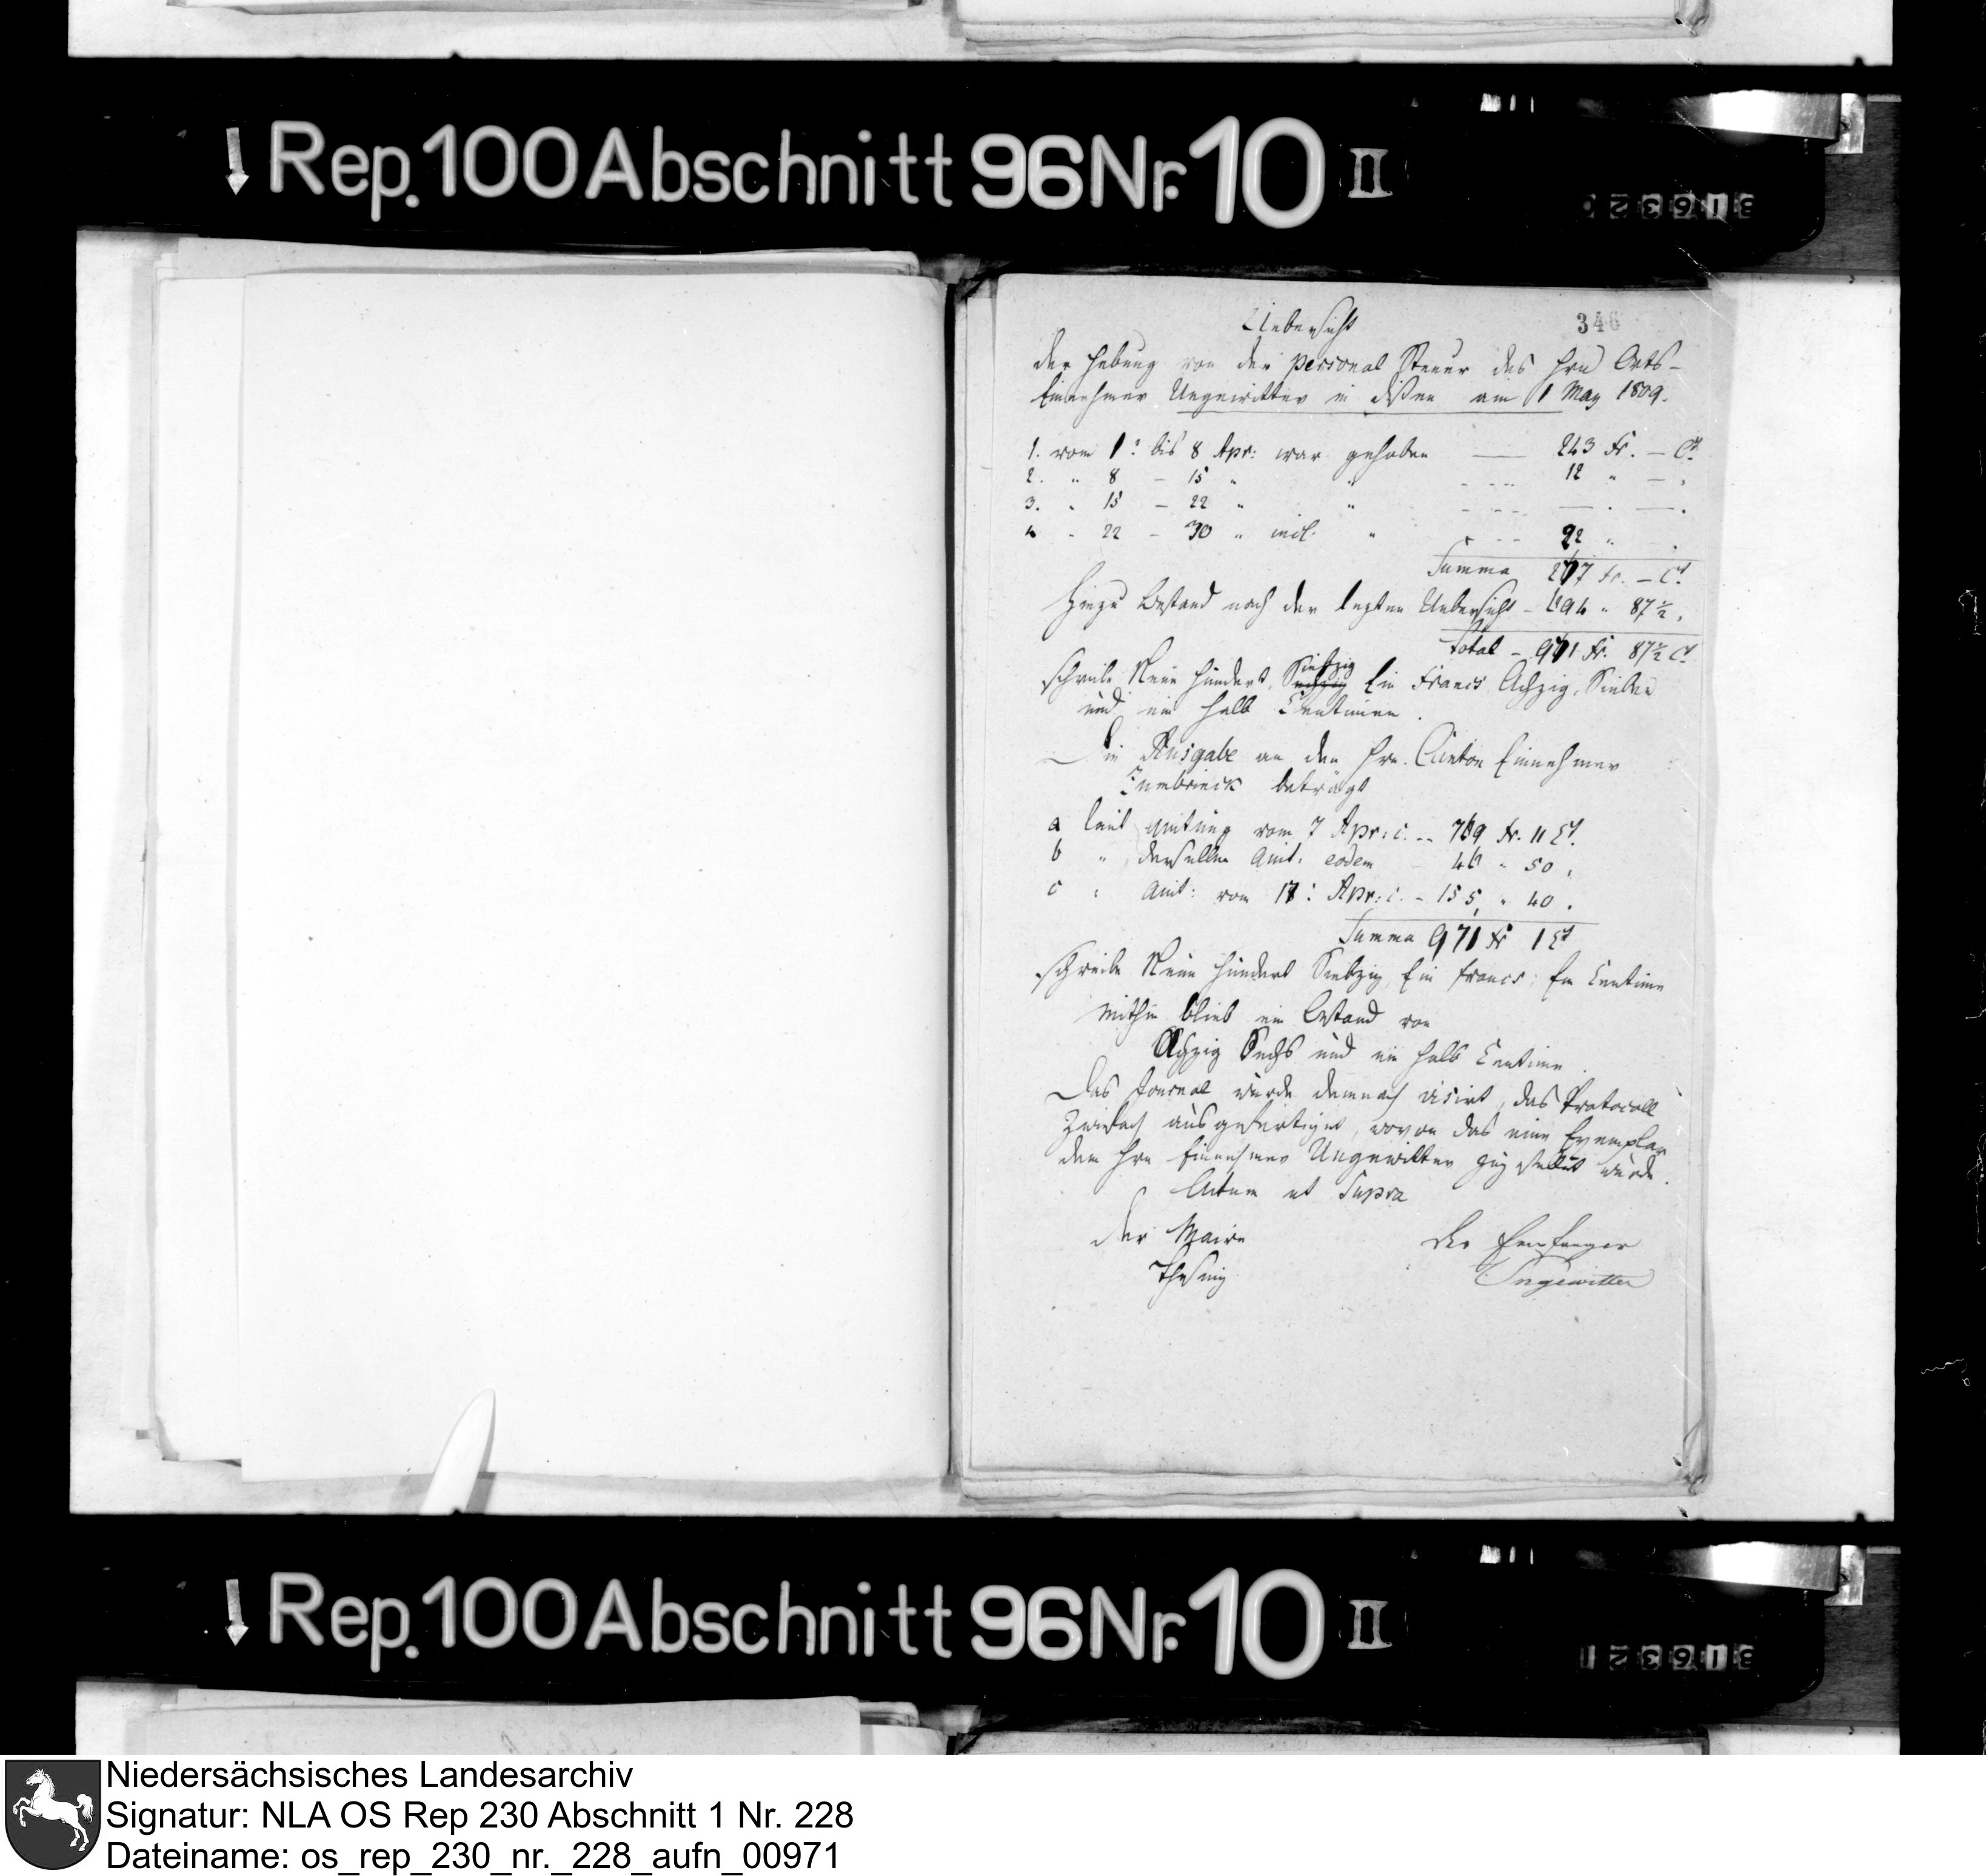 ↓ Rep. 100 Abschnitt 96 Nr. 10 II
346
Uebersicht
der Hebung von der personal Steuer des Hrn Orts-
Einnehmer Ungewitter in Dissen am 1 May 1809.
1. vom 1: bis 8 Apr: war gehoben — 243 Fr. — Ct.
2. " 8 — 15 " " - - - 12 " — "
3. " 15 — 22 " " - - - — . — .
4 - 22 - 30 " incl. " - - 22 " .
Summa 277 Fr. — Ct.
Hinzu Bestand nach der lezten Uebersicht - 694 " 87½ "
Total - 971 Fr. 87½ Ct
schreibe Neun Hundert, Siebzig Ein Francs Achzig, Sieben
und ein halb Centimen.
Die Ausgabe an den Hrn. Canton Einnehmer
Zumbrinck beträgt
a laut Quitung vom 7 Apr: c. -- 769 Fr. 11 Ct.
b " derselben Quit: eodem - 46 " 50 "
c " Quit: vom 17: Apr: c. - 155 " 40 .
Summa 971 Fr 1 Ct
schreibe Neun Hundert Siebzig Ein francs; Ein Centime
Mithin blieb ein Bestand von
Achzig Sechs und ein halb Centime.
Das Journal wurde demnach visirt, das Protocoll
Zweifach ausgefertiget, wovon das eine Exemplar
dem Hrn Einnehmer Ungewitter zugestellt wurde.
Actum ut Supra
Der Maire
Der Empfanger
Ungewitter
↓ Rep. 100 Abschnitt 96 Nr. 10 II
Niedersächsisches Landesarchiv
Signatur: NLA OS Rep 230 Abschnitt 1 Nr. 228
Dateiname: os_rep_230_nr._228_aufn_00971